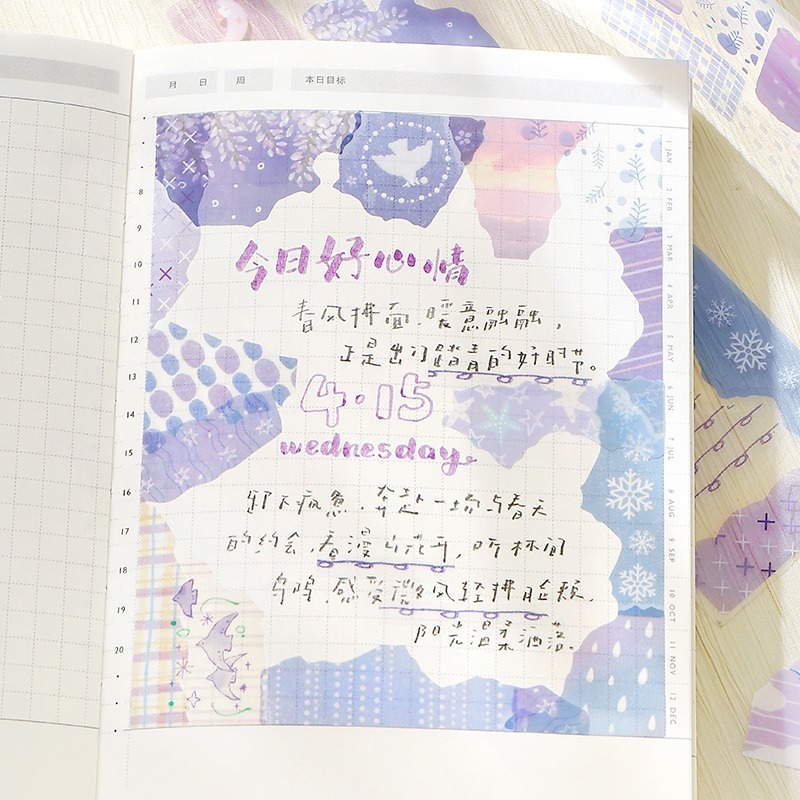 月 日 周 本日目标
今日好心情
春风拂面,暖意融融,
正是出门踏青的好时节。
4·15
wednesday
卸下疲惫,奔赴一场与春天
的约会,看漫山花开,听林间
鸟鸣,感受微风轻拂脸颊,
阳光温柔洒落。
8
9
10
11
12
13
14
15
16
17
18
19
20
1 JAN
2 FEB
3 MAR
4 APR
5 MAY
6 JUN
7 JUL
8 AUG
9 SEP
10 OCT
11 NOV
12 DEC